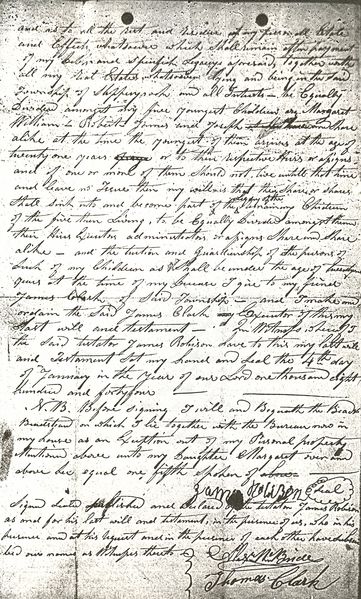 and as to all the rest and residue of my personal Estate
and Effects whatsoever which Shall remain after payment
of my Debts and Specifick Legacys aforesaid, together with
all my real Estate whatsoever lying and being in the said
Township of Slipperyrock and all Interests - be Equally
Divided amongst my five youngest Children, Margaret
William Robert James and Joseph Share
alike at the time the youngest of them arrives at the age of
twenty one years or to their respective Heirs or assigns
and if one or more of them should not live untill that time
and leave no Issue then my will is that they Share or Shares
Shall sink into and become part of the remaining Children
of the five then Living, to be Equally Divided amongst them
their Heirs administrators or assigns Share and Share
alike - and the tuition and Guardianship of the persons of
Such of my Children as Shall be under the age of twenty
years at the time of my Decease I give to my friend
James Clark of Said Township - and I make and
ordain the Said James Clark my Executor of this my
last will and testament - In Witness Whereof
the said testator James Robison have to this my last will
and Testament Set my hand and Seal the 14th day
of January in the Year of our Lord one thousand eight
hundred and forty four
N.B. Before signing I will and Bequeath the Bead
on which I lie together with the Bureau now in
my house as an out of my Personal property
Mentioned above unto my Daughter Margaret over and
above her equal one fifth spoken of above
James Robison Seal
Signed Sealed published and Declared testator James Robison
as and for his last will and testament, in the presence of us, who in his
presence and at his request and in the presence of each other have subscri
bed our names as Witnesses thereto
McBride
Thomas Clark